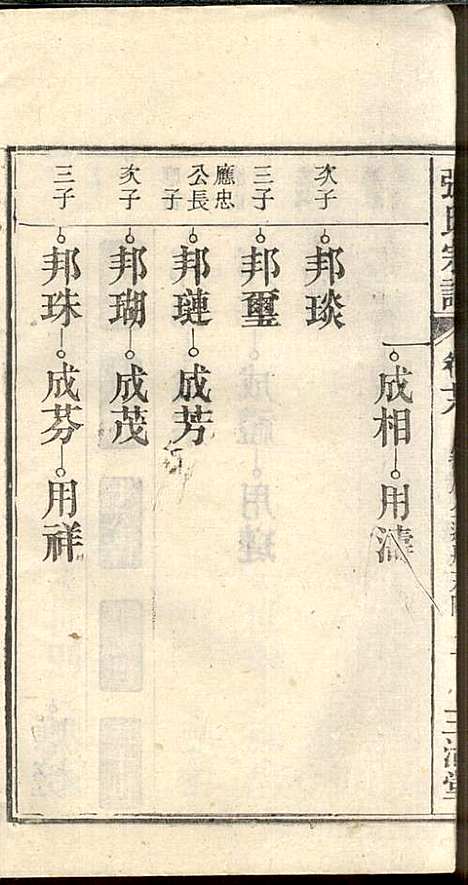 張氏宗譜
成相 用濤
次子 邦琰
三子 邦璽
應忠公長子 邦璉 成芳
次子 邦瑚 成茂
三子 邦珠 成芬 用祥